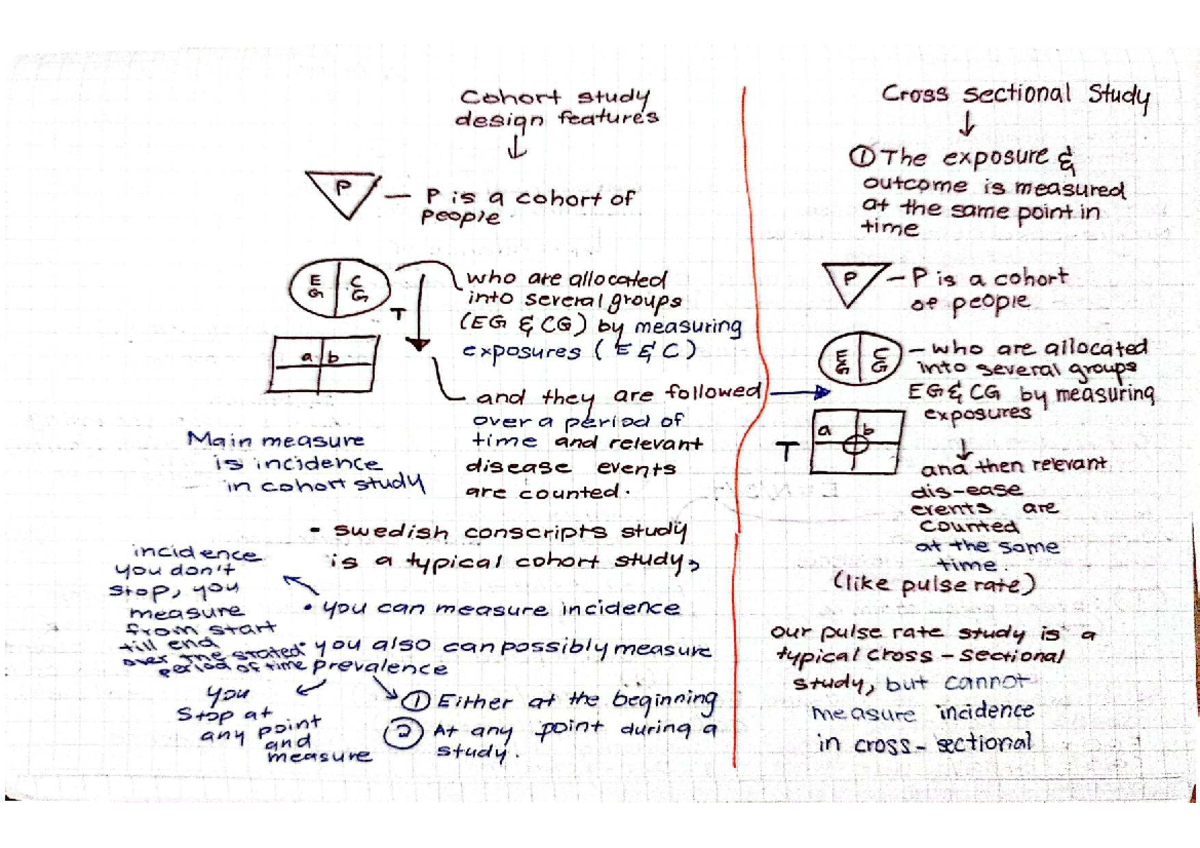 Cohort study
design features
P
— P is a cohort of
people
E
G
C
G
T
who are allocated
into several groups
(EG & CG) by measuring
exposures ( E & C )
a b
and they are followed
over a period of
time and relevant
disease events
are counted.
Main measure
is incidence
in cohort study
• swedish conscripts study
is a typical cohort study,
incidence
you don't
stop, you
measure
from start
till end
over the stated
period of time
• you can measure incidence
• you also can possibly measure
prevalence
you
stop at
any point
and
measure
① Either at the beginning
② At any point during a
study.
Cross sectional Study
① The exposure &
outcome is measured
at the same point in
time
P
— P is a cohort
of people
E
G
C
G
— who are allocated
into several groups
EG & CG by measuring
exposures
a b
T
and then relevant
dis-ease
events are
counted
at the same
time.
(like pulse rate)
our pulse rate study is a
typical cross-sectional
study, but cannot
measure incidence
in cross-sectional